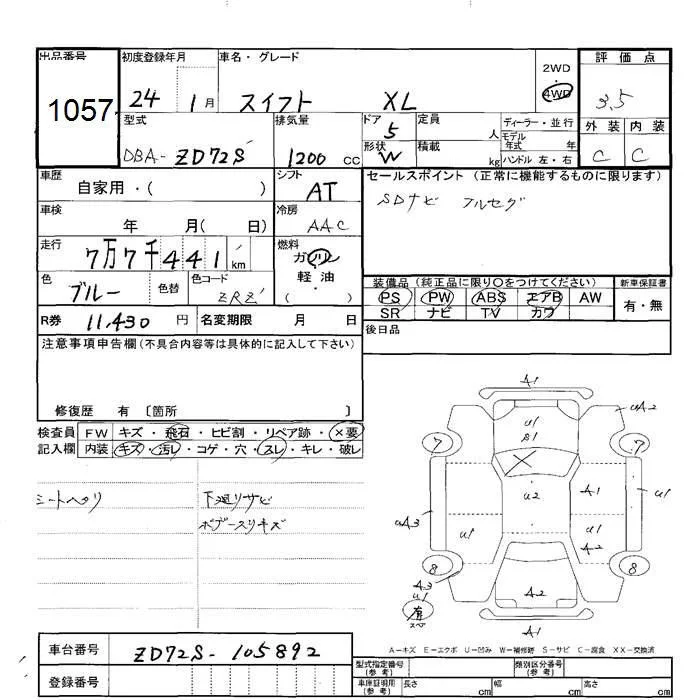 出品番号 初度登録年月 車名・グレード 2WD・4WD 評価点
1057 24 1月 スイフト XL 3.5
型式 排気量 ドア 定員 人 ディーラー・並行 外装 内装
DBA-ZD72S 1200cc 5 モデル年式 年 C C
形状 W 積載 kg ハンドル 左・右
車歴 シフト セールスポイント (正常に機能するものに限ります)
自家用・( ) AT SDナビ フルセグ
車検 冷房
年 月( 日) AAC
走行 燃料
7万7千441km ガソリン
軽油・( )
色 色替 色コード 装備品 (純正品に限り〇をつけてください) 新車保証書
ブルー PS PW ABS エアB AW 有・無
SR ナビ TV カワ
R券 11,430円 名変期限 月 日 後日品
注意事項申告欄(不具合内容等は具体的に記入して下さい)
修復歴 有 〔箇所 〕
検査員 FW キズ・飛石・ヒビ割・リペア跡・×要
記入欄 内装 キズ・汚レ・コゲ・穴・スレ・キレ・破レ
シートヘタリ 下廻リサビ
A1
uA2
u1
B1
7 7
u2 A1 u1
uA3 u1 u1
A2
8 8
A3
u1
A2
A1
A-キズ E-エクボ U-凹み W-補修跡 S-サビ C-腐食 XX-交換済
車台番号 ZD72S-105892
登録番号
型式指定番号(参考) 類別区分番号(参考)
車庫証明用(参考) 長さ cm 幅 cm 高さ cm